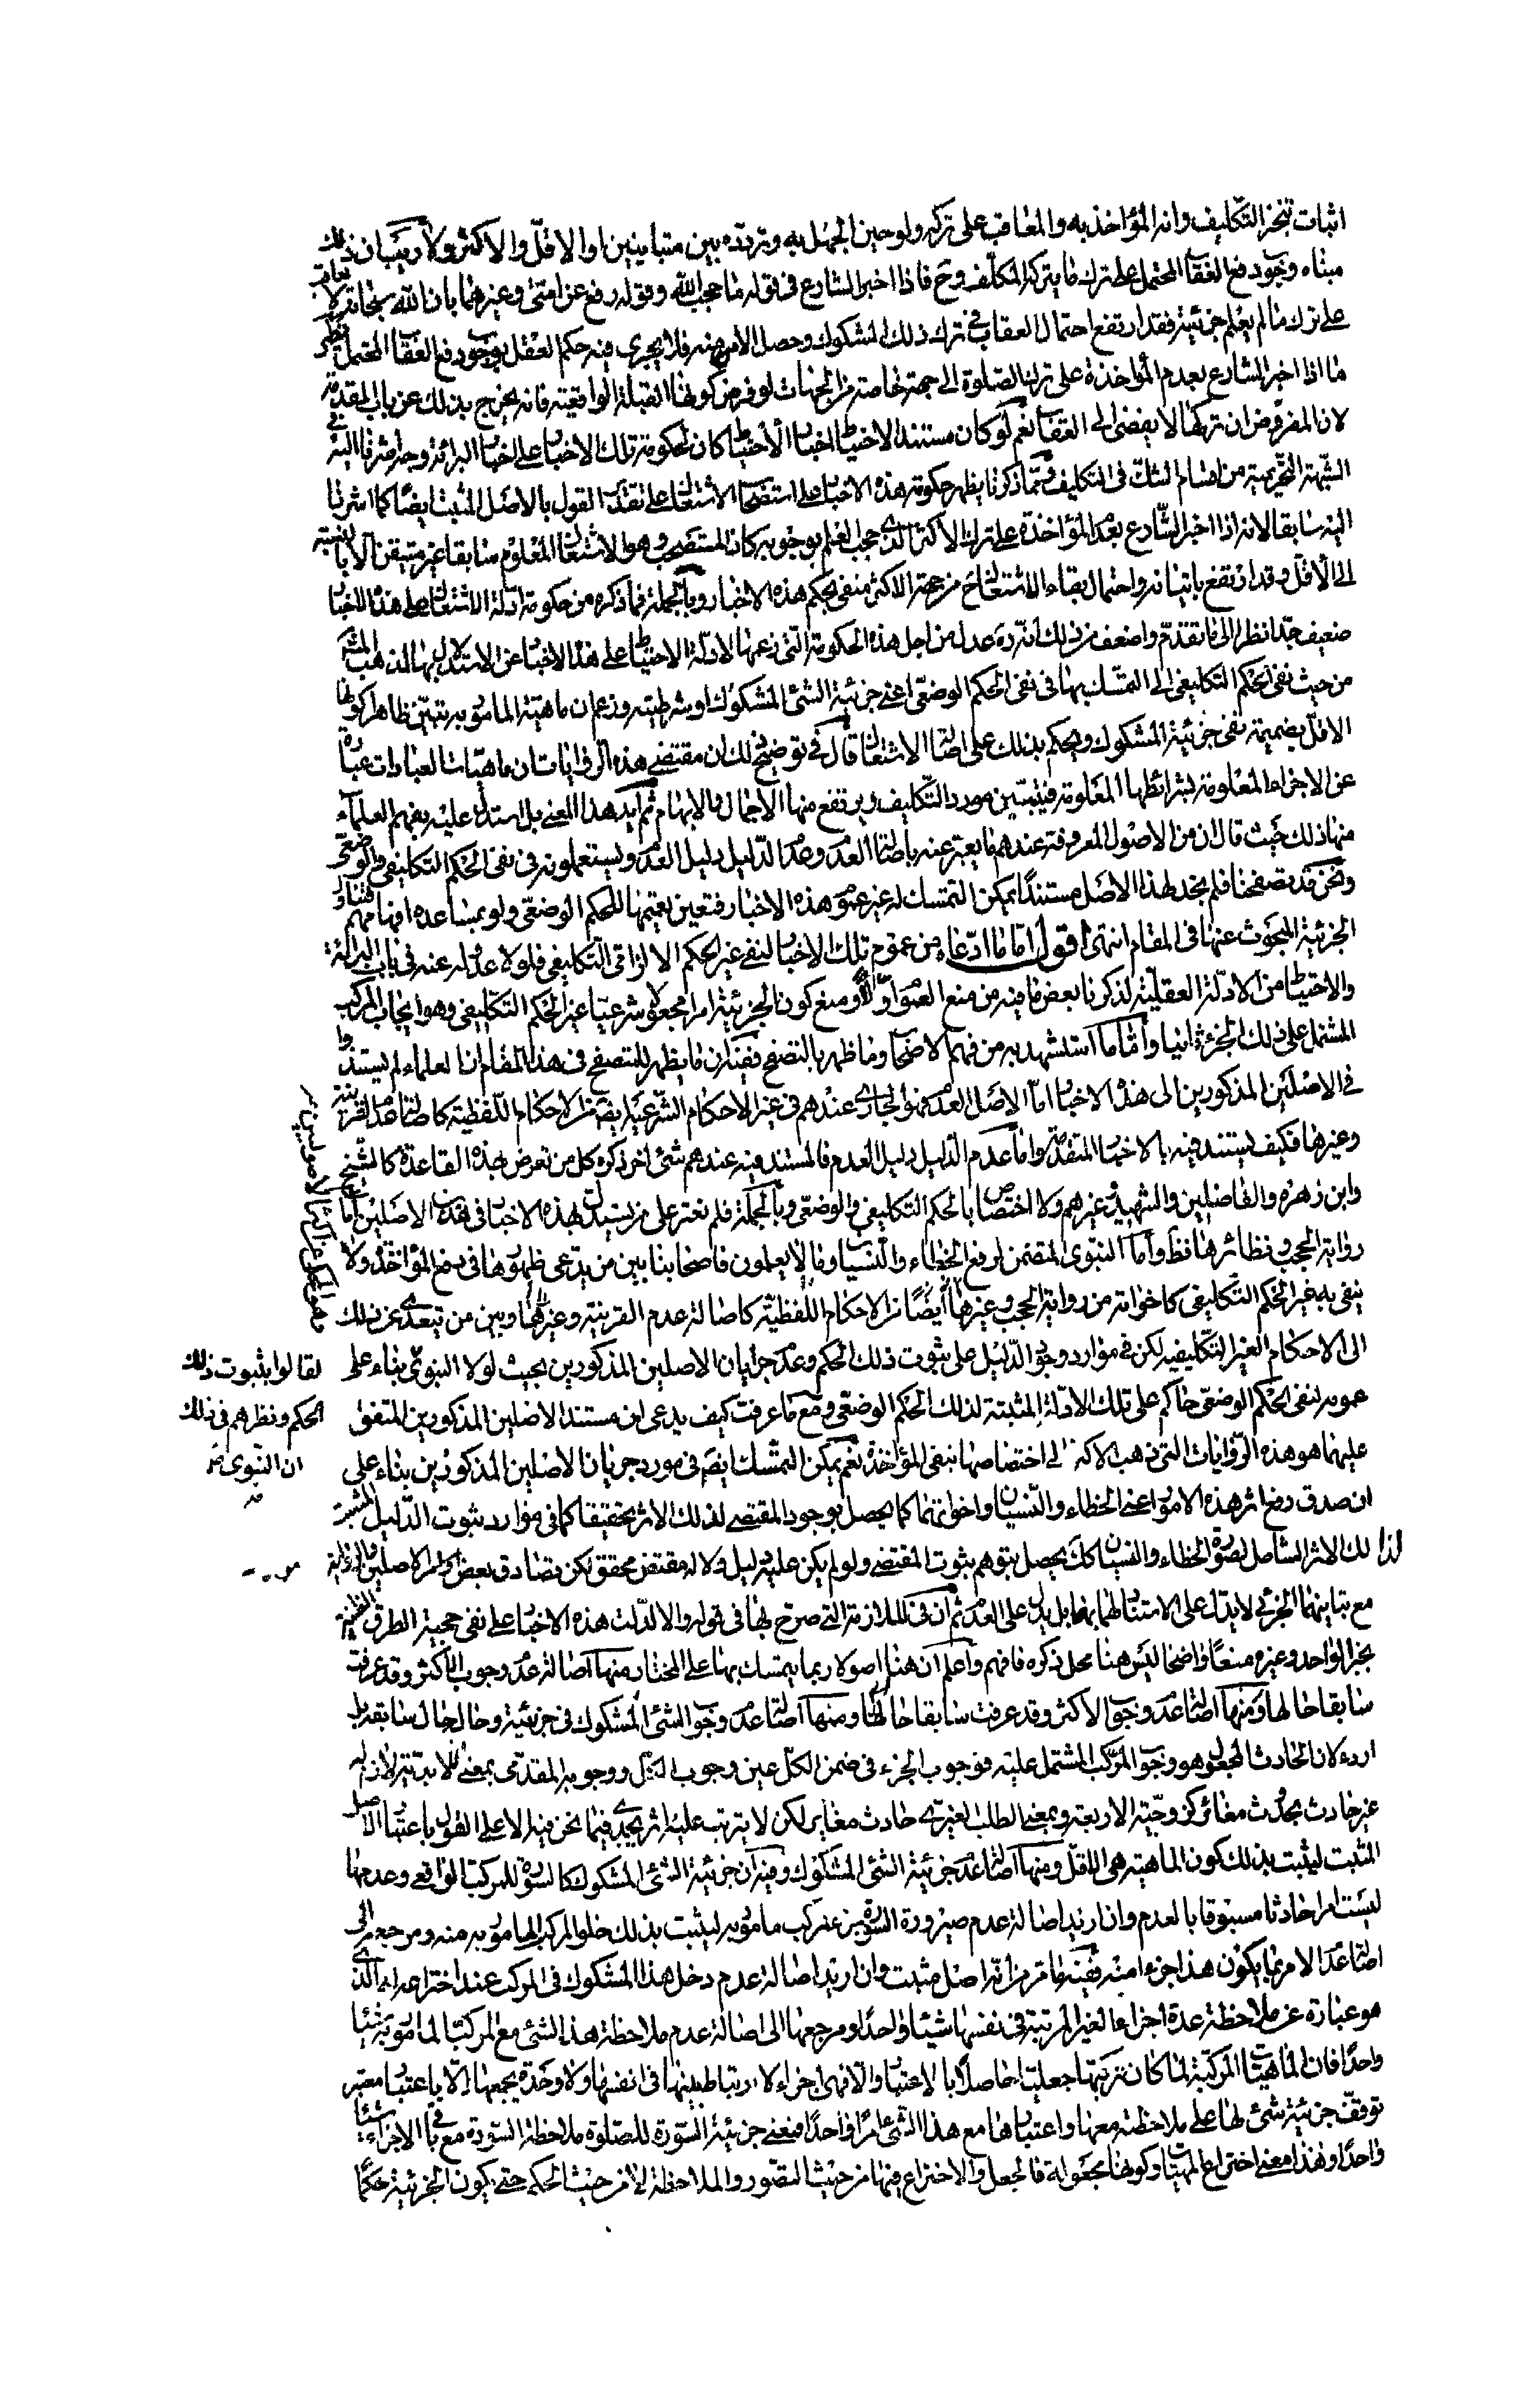 اثبات تنجز التكليف وانه المؤاخذ به والمعاقب على تركه ولو حين الجهل به وتردده بين متباينين او الاقل والاكثر ولا ريب ان ذلك
مبناه وجوب دفع العقاب المحتمل على ترك ما يتركه المكلف وح فاذا اخبر الشارع في قوله ما حجب الله وقوله رفع عن امتى وغيرهما بان الله سبحانه لا يعاقب
على ترك ما لم يعلم جزئيته فقد ارتفع احتمال العقاب في ترك ذلك المشكوك وحصل الامن منه فلا يجرى فيه حكم العقل بوجوب دفع العقاب المحتمل نظير
ما اذا اخبر الشارع بعدم المؤاخذة على ترك الصلوة الى جهة خاصة من الجهات لو فرض كونها القبلة الواقعية فانه يخرج بذلك عن باب المقدمة
لان المفروض ان تركها لا يفضى الى العقاب نعم لو كان مستند الاحتياط اخبار الاحتياط كان لحكومة تلك الاخبار على اخبار البرائة وجه اشرنا اليه في
الشبهة التحريمية من اقسام الشك في التكليف ومما ذكرنا يظهر حكومة هذه الاخبار على استصحاب الاشتغال على تقدير القول بالاصل المثبت ايضا كما اشرنا
اليه سابقا لانه اذا اخبر الشارع بعدم المؤاخذة على ترك الاكثر الذى حجب العلم بوجوبه كان المستصحب وهو الاشتغال المعلوم سابقا غير متيقن الا بالنسبة
الى الاقل وقد ارتفع باتيانه واحتمال بقاء الاشتغال ح من جهة الاكثر منفى بحكم هذه الاخبار وبالجملة فما ذكره من حكومة ادلة الاشتغال على هذه الاخبار
ضعيف جدا نظرا الى ما تقدم واضعف من ذلك انه ره عدل من اجل هذه الحكومة التى زعمها لادلة الاحتياط على هذه الاخبار عن الاستدلال بها لمذهب المشهور
من حيث نفى الحكم التكليفى الى التمسك بها في نفى الحكم الوضعى اعنى جزئية الشئ المشكوك او شرطيته وزعم ان ماهية المامور به تتبين ظاهرا كونها
الاقل بضميمة نفى جزئية المشكوك ويحكم بذلك على اصالة الاشتغال قال في توضيح ذلك ان مقتضى هذه الروايات ان ماهيات العبادات عبارة
عن الاجزاء المعلومة بشرائطها المعلومة فيتبين مورد التكليف ويرتفع منها الاجمال والابهام ثم ايد هذا المعنى بل استدل عليه بفهم العلماء
منها ذلك حيث قال ان من الاصول المعروفة عندهم ما يعبر عنه باصالة العدم وعدم الدليل دليل العدم ويستعملونه في نفى الحكم التكليفى والوضعى
ونحن قد تصفحنا فلم نجد لهذا الاصل مستندا يمكن التمسك له غير عموم هذه الاخبار فتعين تعميمها للحكم الوضعى ولو بمساعدة افهامهم فتناول
الجزئية المبحوث عنها في المقام انتهى اقول اما ما ادعاه من عموم تلك الاخبار لنفى غير الحكم الالزامى التكليفى فلولا عدوله عنه في باب البرائة
والاحتياط من الادلة العقلية لذكرنا بعض ما فيه من منع العموم اولا ومنع كون الجزئية امرا مجعولا شرعيا غير الحكم التكليفى وهو ايجاب المركب
المشتمل على ذلك الجزء ثانيا واما ما استشهد به من فهم الاصحاب وما ظهر بالتصفح ففيه ان ما يظهر للمتصفح في هذا المقام ان العلماء لم يستندوا
في الاصلين المذكورين الى هذه الاخبار اما الاصل العدم فهو الجارى عندهم في غير الاحكام الشرعية ايضا من الاحكام اللفظية كاصالة عدم القرينة
وغيرها فكيف يستند فيه بالاخبار المتقدمة واما عدم الدليل دليل العدم فالمستند فيه عندهم شئ اخر ذكره كل من تعرض لهذه القاعدة كالشيخ
وابن زهرة والفاضلين والشهيد وغيرهم ولا اختصاص له بالحكم التكليفى والوضعى وبالجملة فلم نعثر على من يستدل بهذه الاخبار في هذين الاصلين اما
رواية الحجب ونظائرها فظ واما النبوى المتضمن لرفع الخطاء والنسيان وما لا يعلمون فاصحابنا بين من يدعى ظهورها في رفع المؤاخذة ولا
ينفى به غير الحكم التكليفى كاخواته من رواية الحجب وغيرها ايضا من الاحكام اللفظية كاصالة عدم القرينة وغيرهما وبين من يتعدى عن ذلك
الى الاحكام الغير التكليفيه لكن في موارد وجود الدليل على ثبوت ذلك الحكم وعدم جريان الاصلين المذكورين بحيث لولا النبوى بناء على
لقالوا بثبوت ذلك
عمومه لنفى الحكم الوضعى حاكم على تلك الادلة المثبتة لذلك الحكم الوضعى ومع ما عرفت كيف يدعى ان مستند الاصلين المذكورين المتفق
الحكم ونظرهم في ذلك
عليهما هو هذه الروايات التى ذهب الاكثر الى اختصاصها بنفى المؤاخذة نعم يمكن التمسك بها ايضا في مورد جريان الاصلين المذكورين بناء على
ان النبوى
ان صدق رفع اثر هذه الامور اعنى الخطاء والنسيان واخواتهما كما يحصل بوجود المقتضى لذلك الاثر تحقيقا كما في موارد ثبوت الدليل المثبت
لذلك الاثر الشامل لصورة الخطاء والنسيان كك يحصل بتوهم ثبوت المقتضى ولو لم يكن عليه دليل ولا له مقتض محقق لكن تصادق بعض موارد الاصلين والرواية
مع تباينهما الجزئى لا يدل على الاستناد لهما بهما بل يدل على العدم ثم ان في الملازمة التى صرح بها في قوله والا لدلت هذه الاخبار على نفى حجية الطرق الظنية
كخبر الواحد وغيره منعا واضحا ليس هنا محل ذكره فافهم واعلم ان هنا اصولا ربما يتمسك بها على المختار منها اصالة عدم وجوب الاكثر وقد عرفت
سابقا حالها ومنها اصالة عدم وجوب الاكثر وقد عرفت سابقا حالها ومنها اصالة عدم وجوب الشئ المشكوك في جزئيته وحالها حال سابقه بل
اردء لان الحادث المجعول هو وجوب المركب المشتمل عليه فوجوب الجزء في ضمن الكل عين وجوب الكل ووجوبه المقدمى بمعنى اللابدية لازم له
غير حادث بحدوث مغاير كزوجية الاربعة وبمعنى الطلب الغيرى حادث مغاير لكن لا يترتب عليه اثر يجدى فيما نحن فيه الا على القول باعتبار الاصل
المثبت ليثبت بذلك كون الماهية هى الاقل ومنها اصالة عدم جزئية الشئ المشكوك وفيه ان جزئية الشئ المشكوك كالسورة للمركب الواقعى وعدمها
ليست امرا حادثا مسبوقا بالعدم وان اريد اصالة عدم صيرورة السورة جزء مركب مامور به ليثبت بذلك خلو المركب المامور به منه ومرجعه الى
اصالة عدم الامر بما يكون هذا جزء منه ففيه ما مر من انه اصل مثبت وان اريد اصالة عدم دخل هذا المشكوك في المركب عند اختراعه له الذى
هو عبارة عن ملاحظة عدة اجزاء الغير المرتبة في نفسها شيئا واحدا ومرجعها الى اصالة عدم ملاحظة هذا الشئ مع المركب المامور به شيئا
واحدا فان الماهيات المركبة لما كان تركبها جعليا حاصلا بالاعتبار والا فهى اجزاء لا ارتباط بينها في انفسها ولا وحدة يجمعها الا باعتبار معتبر
توقف جزئية شئ لها على ملاحظته معها واعتبارها مع هذا الشئ امرا واحدا فمعنى جزئية السورة للصلوة ملاحظة السورة مع باقى الاجزاء شيئا
واحدا وهذا معنى اختراع المهيات وكونها مجعولة فالجعل والاختراع فيها من حيث التصور والملاحظة لا من حيث الحكم حتى يكون الجزئية حكما